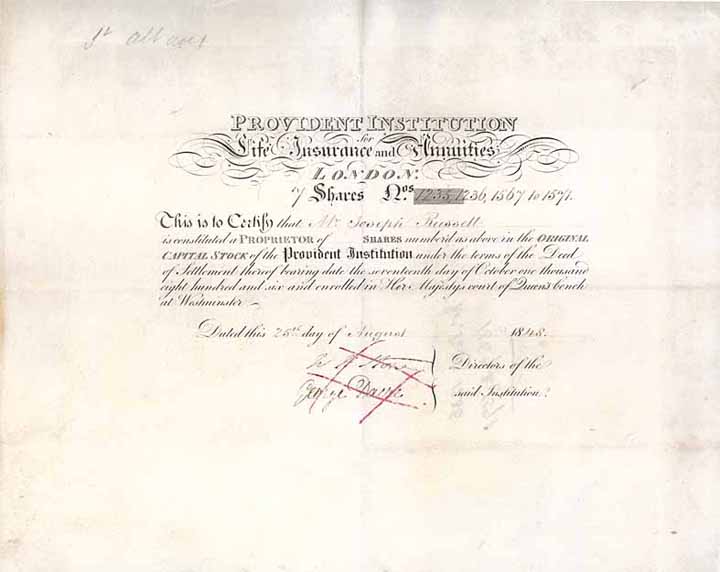 St Albans
PROVIDENT INSTITUTION
for
Life Insurance and Annuities
LONDON.
7 Shares Nos. 1235, 1236, 1567 to 1571.
This is to Certify that Mr. Joseph Russell
is constituted a PROPRIETOR of SHARES number'd as above in the ORIGINAL
CAPITAL STOCK of the Provident Institution under the terms of the Deed
of Settlement thereof bearing date the seventeenth day of October one thousand
eight hundred and six and enrolled in Her Majesty's court of Queen's bench
at Westminster.
Dated this 25th day of August 1848.
Directors of the
George
said Institution.